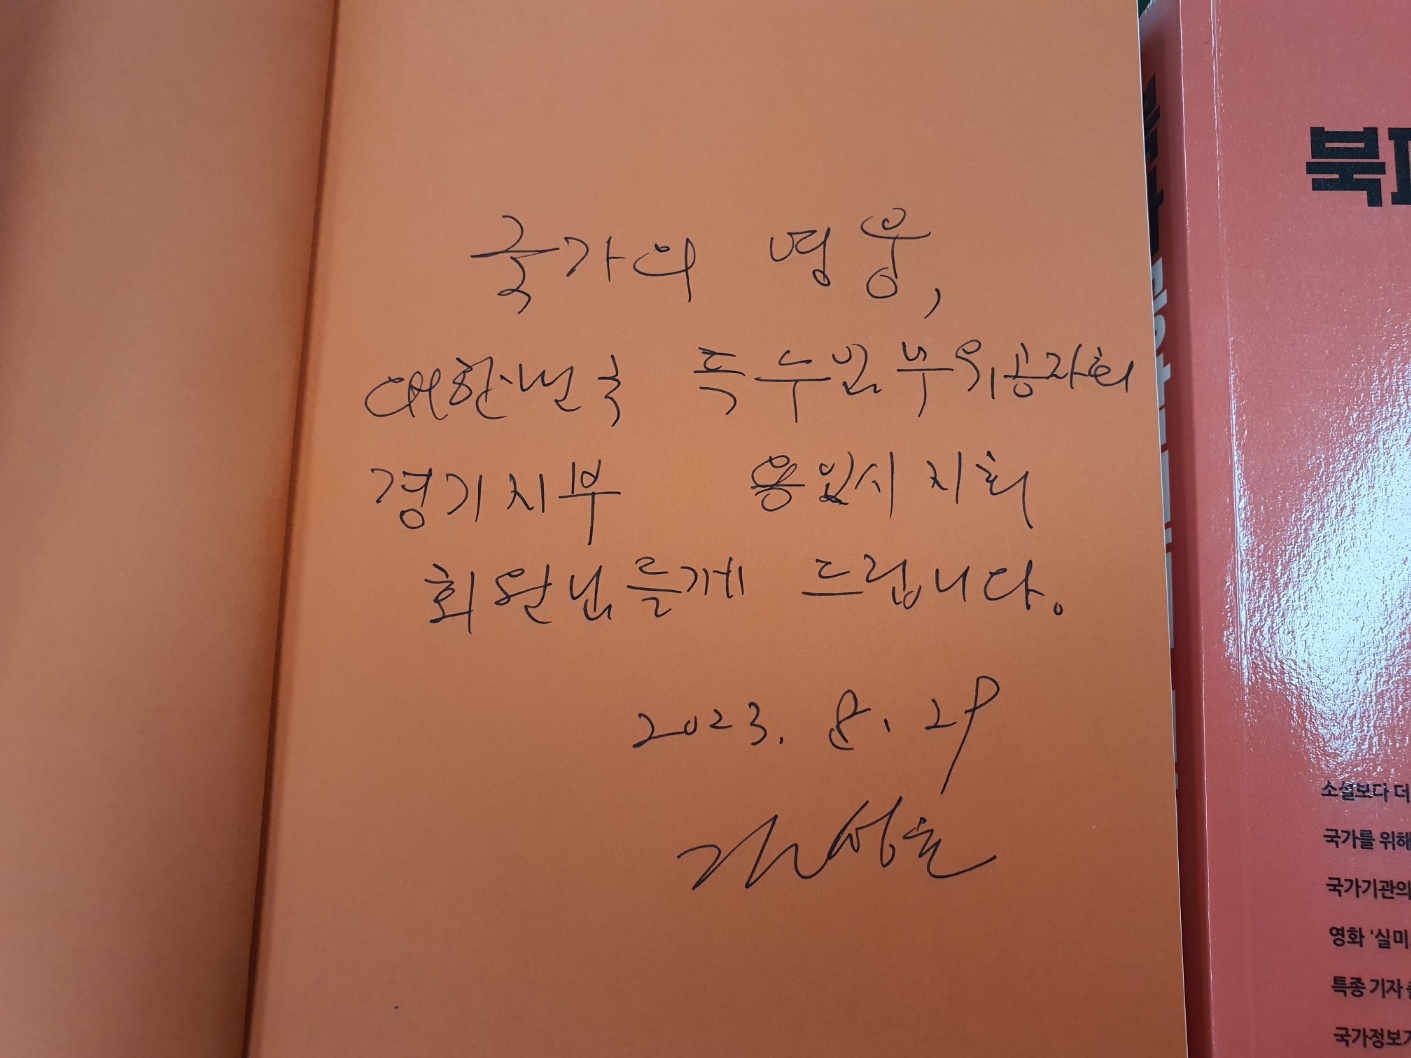 국가의 영웅,
대한민국 특수임무유공자회
경기지부 용인시지회
회원님들께 드립니다.
2023. 8. 29
김성호
북파
소설보다 더
국가를 위해
국가기관의
영화 '실미
특종 기자
국가정보기